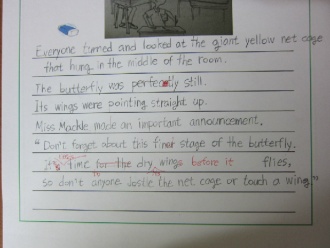 Everyone turned and looked at the giant yellow net cage
that hung in the middle of the room.
The butterfly was perfectly still.
Its wings were pointing straight up.
Miss Mackle made an important announcement.
"Don't forget about this final stage of the butterfly.
it's time for the dry wings before it flies,
so don't anyone Joslie the net cage or touch a wing."